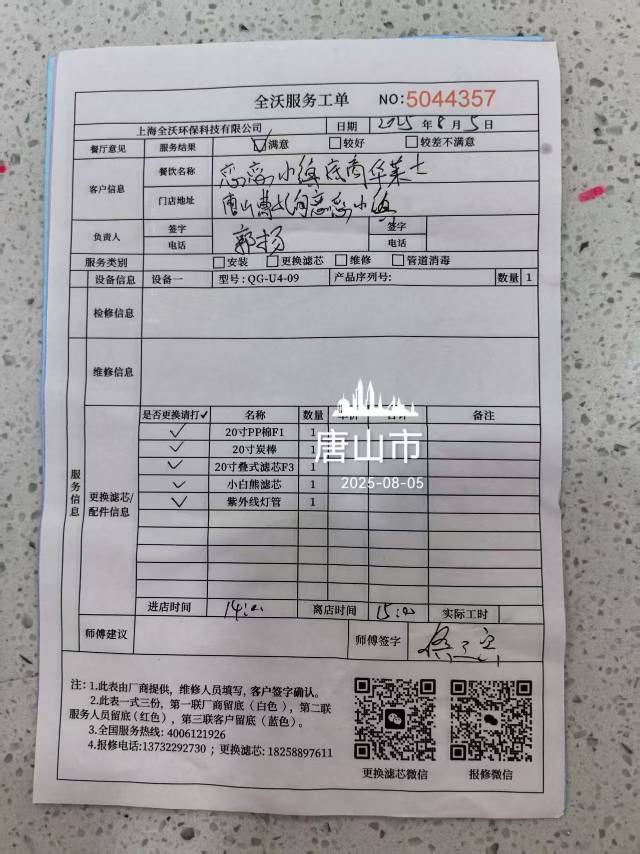 全沃服务工单 NO:5044357
上海全沃环保科技有限公司 日期 2025年8月5日
餐厅意见 服务结果 ☑满意 □较好 □较差不满意
客户信息 餐饮名称 华莱士
门店地址 唐山
负责人 签字 郭扬 签字
电话 电话
服务类别 □安装 □更换滤芯 □维修 □管道消毒
设备信息 设备一 型号:QG-U4-09 产品序列号: 数量 1
检修信息
维修信息
服务信息
更换滤芯/配件信息
是否更换请打✓ 名称 数量 单价 合计 备注
✓ 20寸PP棉F1 1
✓ 20寸炭棒 1
✓ 20寸叠式滤芯F3 1
✓ 小白熊滤芯 1
✓ 紫外线灯管 1
唐山市
2025-08-05
进店时间 14:00 离店时间 15:00 实际工时
师傅建议 师傅签字
注:1.此表由厂商提供，维修人员填写，客户签字确认。
2.此表一式三份，第一联厂商留底（白色），第二联
服务人员留底(红色），第三联客户留底（蓝色）。
3.全国服务热线: 4006121926
4.报修电话:13732292730 ；更换滤芯: 18258897611
更换滤芯微信 报修微信